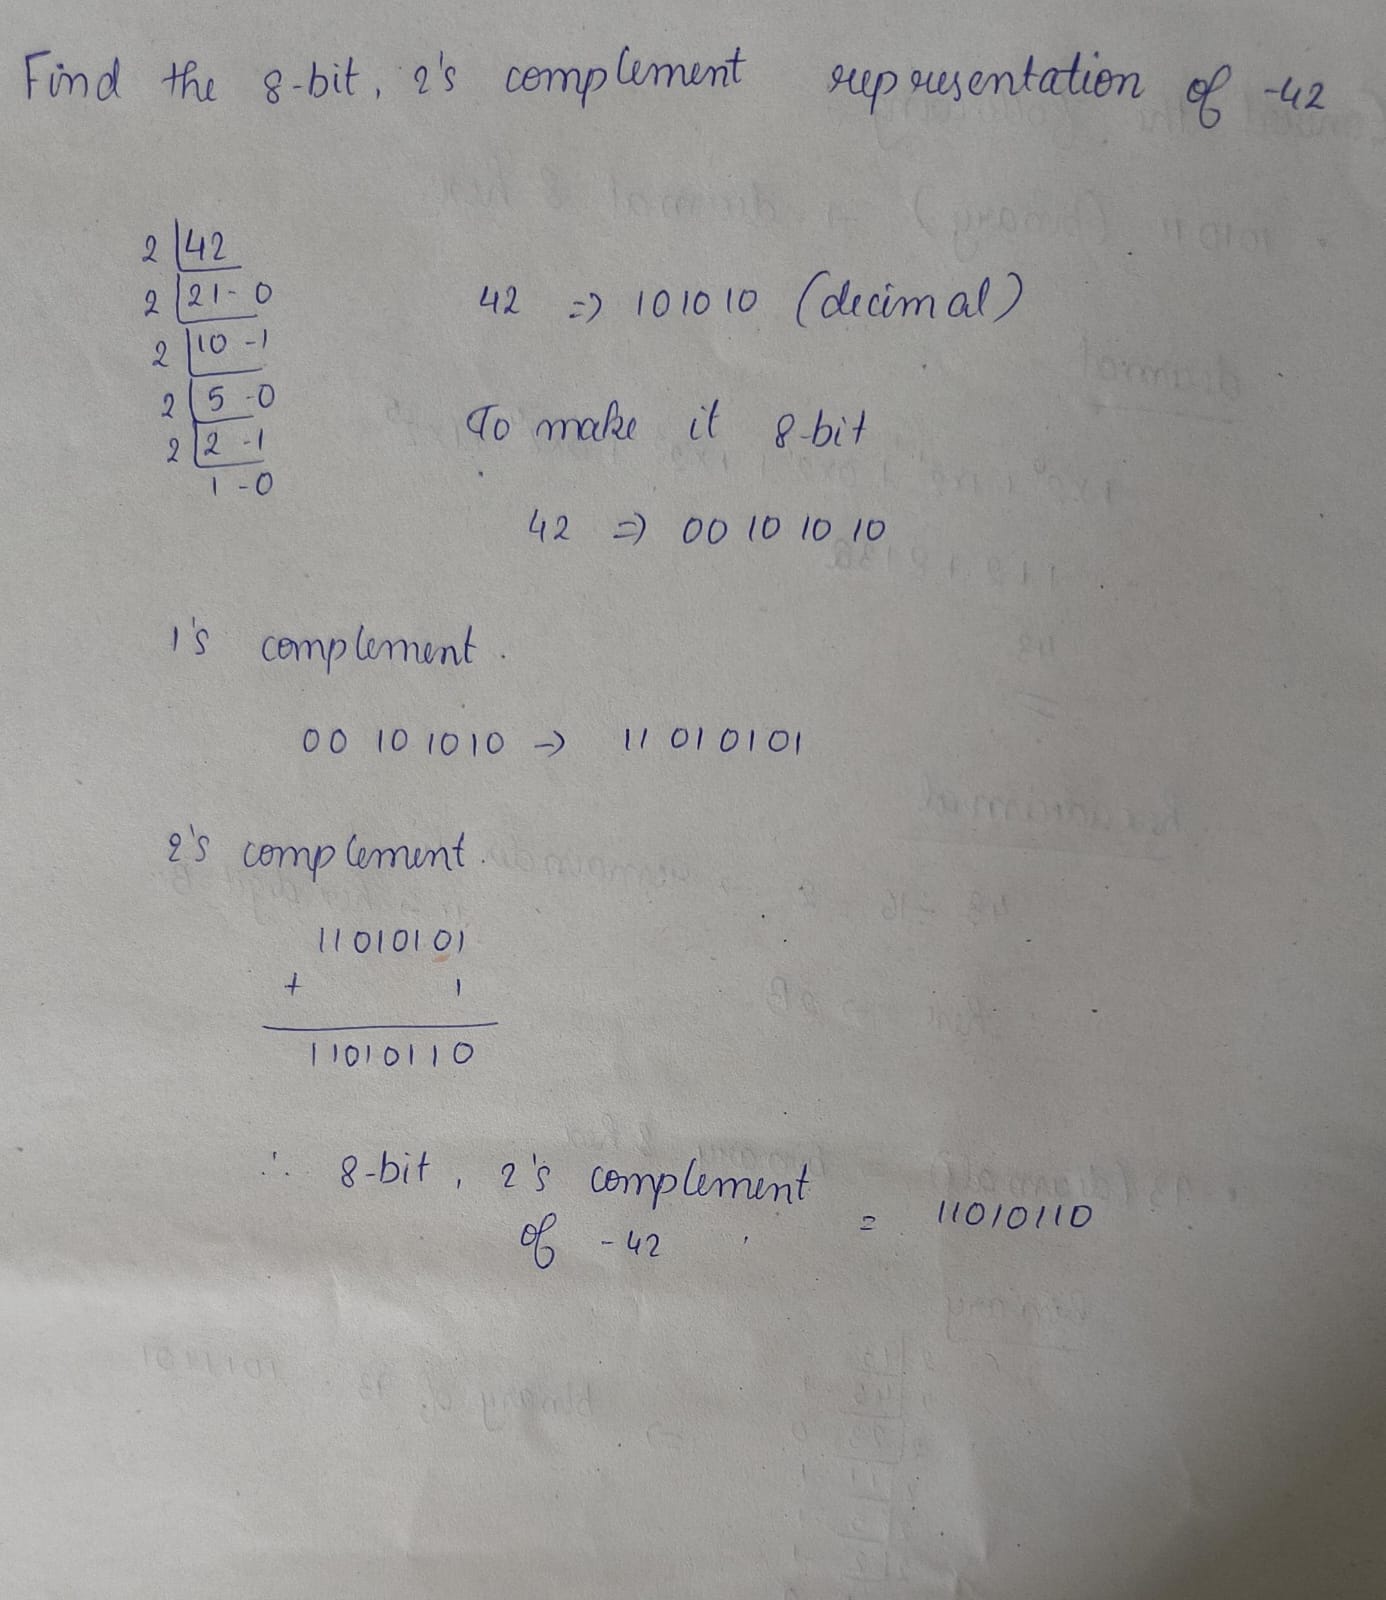 Find the 8-bit, 2's complement representation of -42
2 42
2 21 - 0
2 10 - 1
2 5 - 0
2 2 - 1
1 - 0
42 => 101010 (decimal)
To make it 8-bit
42 => 00 10 10 10
1's complement.
00 10 1010 -> 11 010101
2's complement.
11010101
+ 1
11010110
∴ 8-bit, 2's complement
of -42 = 11010110